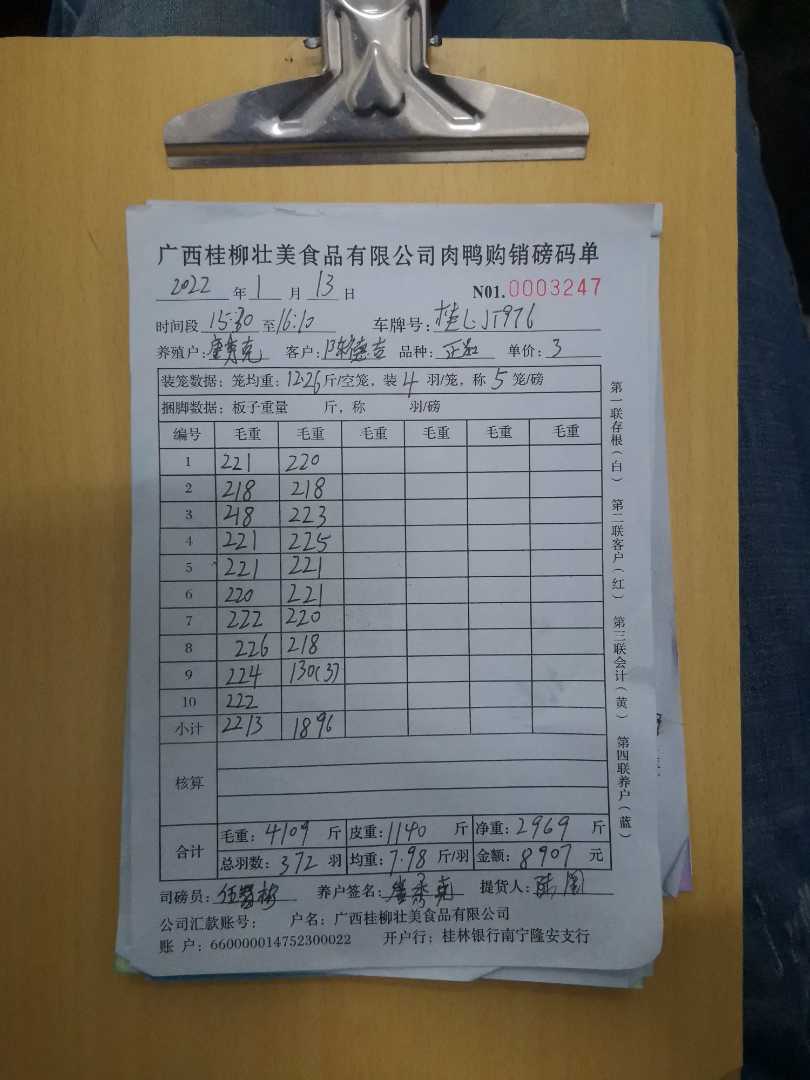 广西桂柳壮美食品有限公司肉鸭购销磅码单
2022 年 1 月 13 日 N01.0003247
时间段 15:30 至 16:10 车牌号: 桂LJT976
养殖户: 客户: 陈德吉 品种: 单价: 3
装笼数据: 笼均重: 12.26 斤/空笼, 装 4 羽/笼, 称 5 笼/磅
捆脚数据: 板子重量 斤, 称 羽/磅
编号 毛重 毛重 毛重 毛重 毛重 毛重
1 221 220
2 218 218
3 218 223
4 221 225
5 221 221
6 220 221
7 222 220
8 226 218
9 224 130(3)
10 222
小计 2213 1896
核算
合计 毛重: 4109 斤 皮重: 1140 斤 净重: 2969 斤
总羽数: 372 羽 均重: 7.98 斤/羽 金额: 8907 元
司磅员: 养户签名: 提货人:
公司汇款账号: 户名: 广西桂柳壮美食品有限公司
账 户: 660000014752300022 开户行: 桂林银行南宁隆安支行
第一联存根(白) 第二联客户(红) 第三联会计(黄) 第四联养户(蓝)